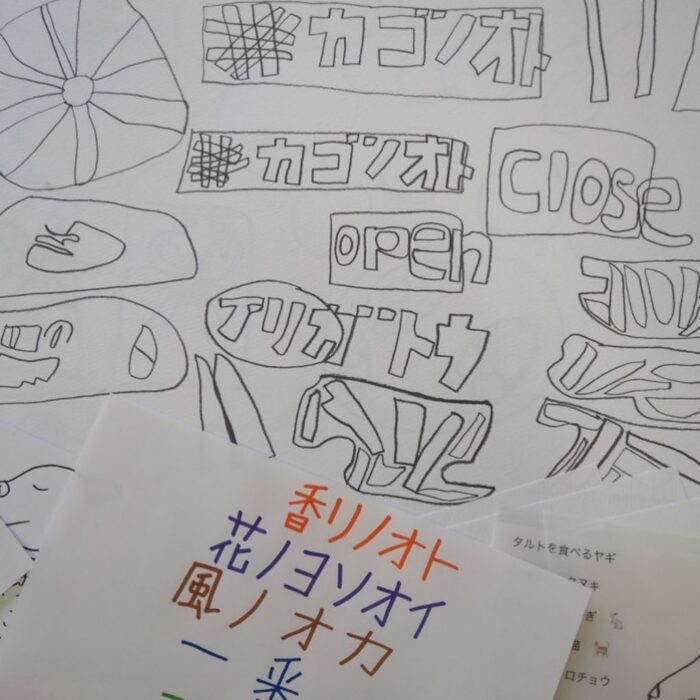 カゴノオト
カゴノオト
Close
open
アリガトウ
香リノオト
花ノヨソオイ
風ノオカ
一采
タルトを食べるヤギ
タマキ
ぎ
猫
ロチョウ